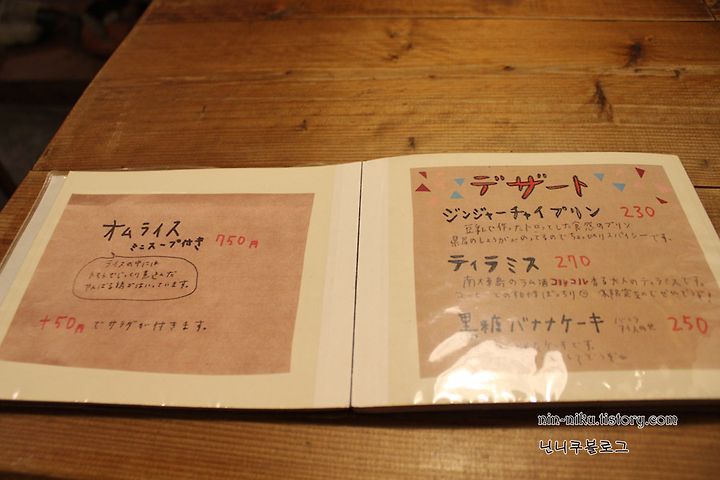 オムライス
ミニスープ付き 750円
ライスの中には
じっくり煮込んだ
やんばる鶏がはいっています。
+50円 でサラダが付きます。
デザート
ジンジャーチャイプリン 230
豆乳で作ったトロッとした食感のプリン
県産のしょうががのってるのでちょっぴりスパイシーです。
ティラミス 270
南大東島のラム酒コルコル香る大人のティラミスです。
コーヒーとの相性ばっちり
黒糖バナナケーキ 250
nin-niku.tistory.com
닌니쿠블로그